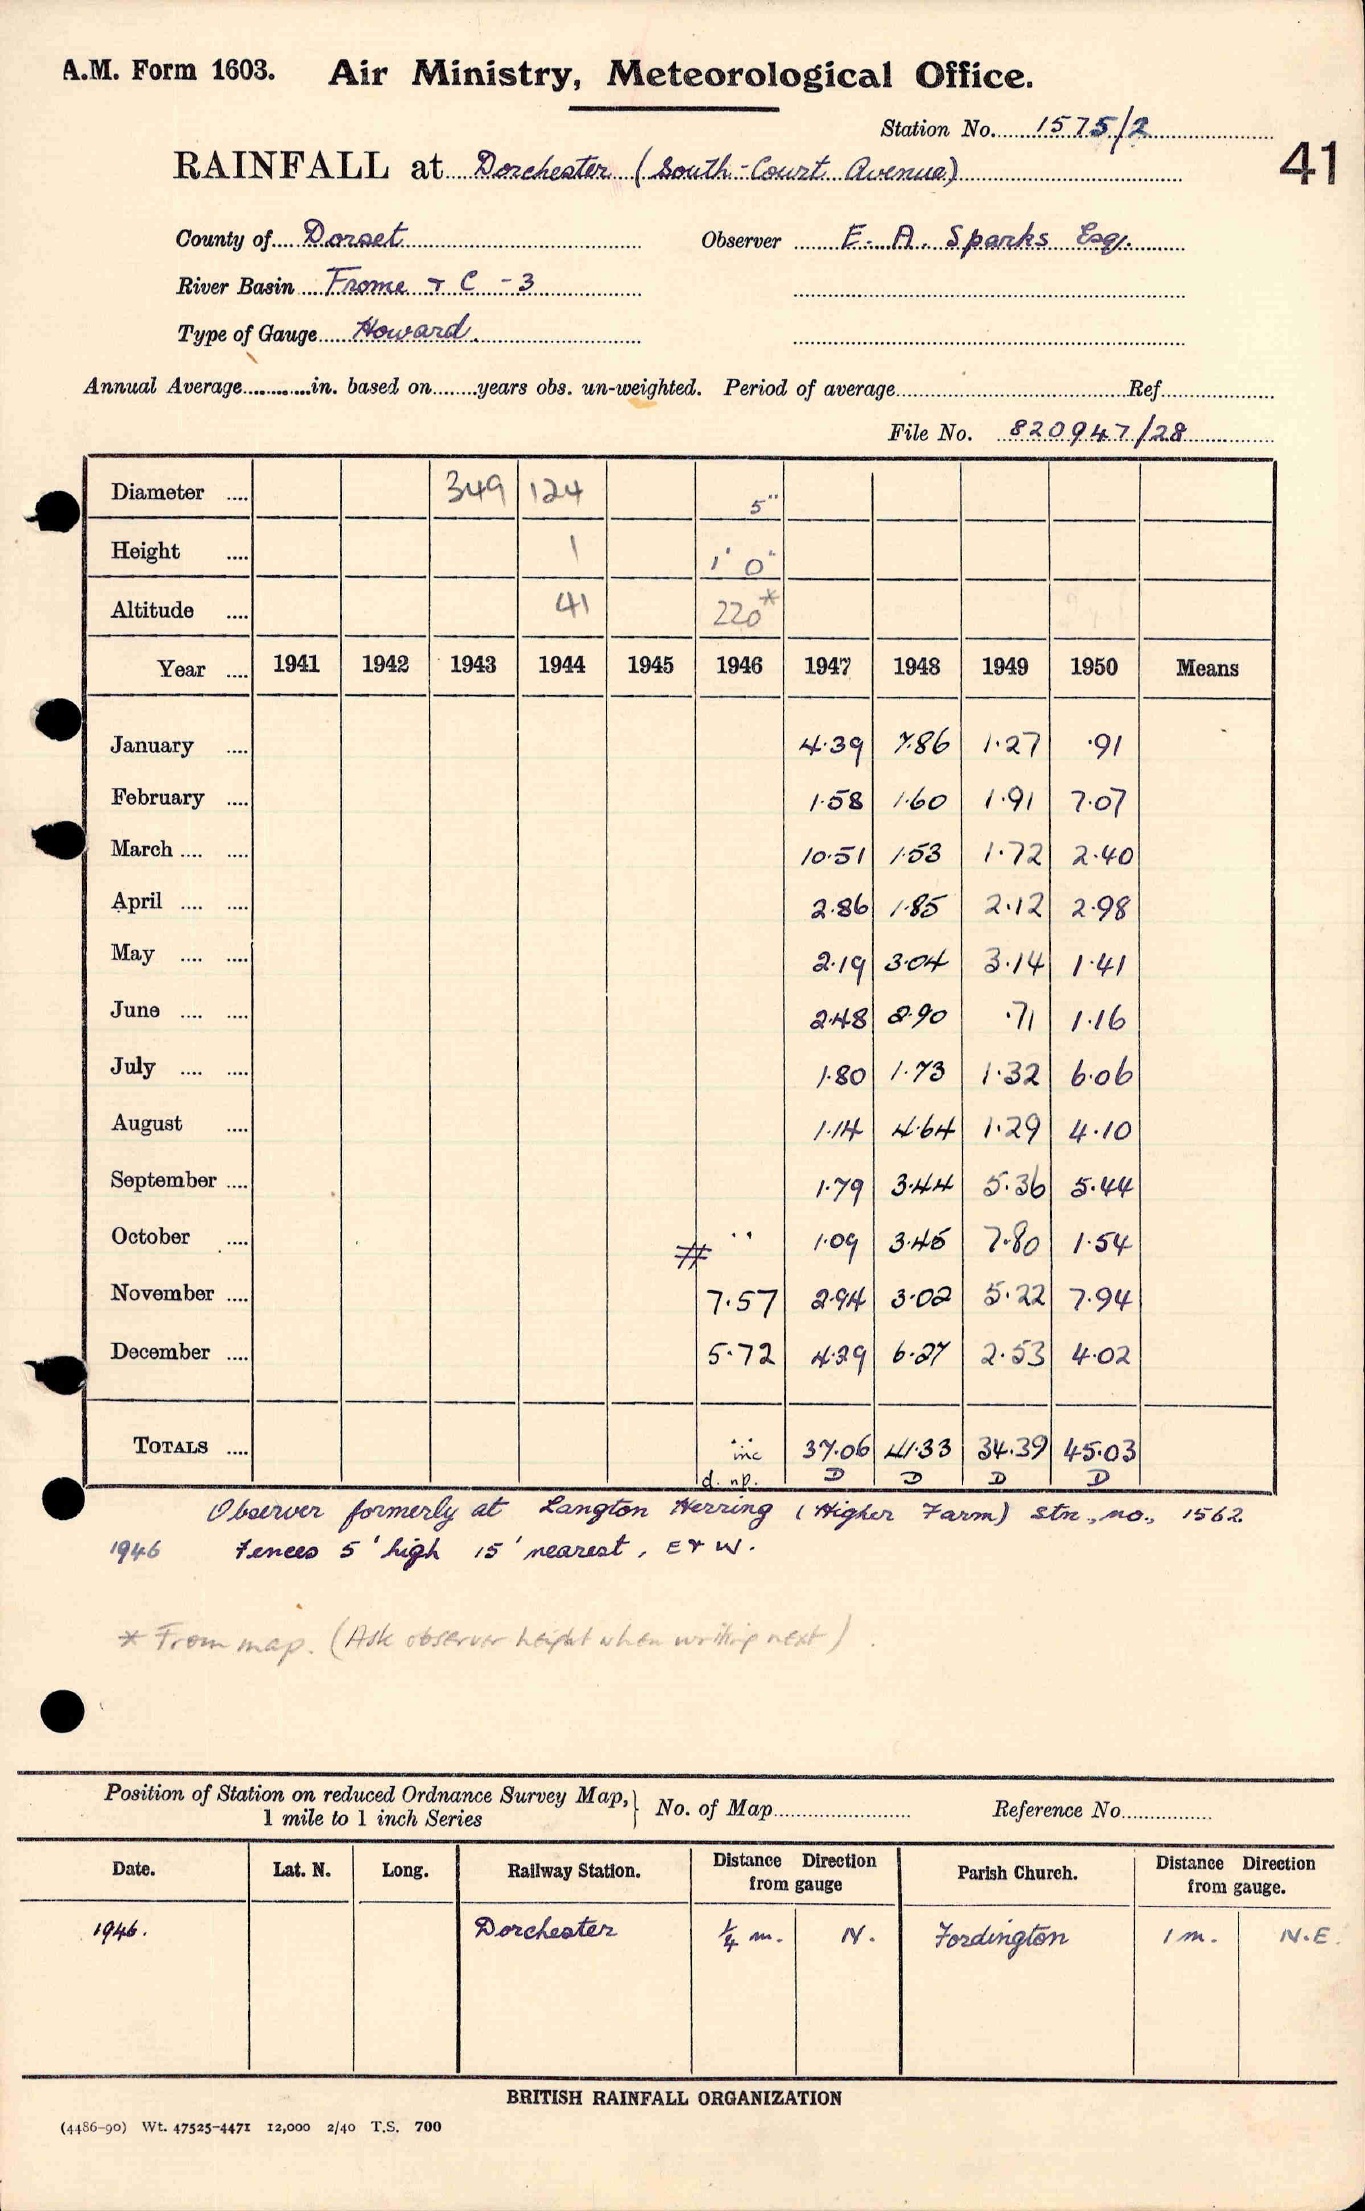 A.M. Form 1603. Air Ministry, Meteorological Office.
Station No. 1575/2
41
RAINFALL at Dorchester (South-Court Avenue)
County of Dorset Observer E. A. Sparks Esq.
River Basin Frome & C - 3
Type of Gauge Howard.
Annual Average............in. based on.......years obs. un-weighted. Period of average Ref
File No. 820947/28
Diameter .... 349 124 5"
Height .... 1 1' 0"
Altitude .... 41 220*
Year .... 1941 1942 1943 1944 1945 1946 1947 1948 1949 1950 Means
January .... 4.39 7.86 1.27 .91
February .... 1.58 1.60 1.91 7.07
March .... .... 10.51 1.53 1.72 2.40
April .... .... 2.86 1.85 2.12 2.98
May .... .... 2.19 3.04 3.14 1.41
June .... .... 2.48 2.90 .71 1.16
July .... .... 1.80 1.73 1.32 6.06
August .... 1.14 4.64 1.29 4.10
September .... 1.79 3.44 5.36 5.44
October .... # .. 1.09 3.45 7.80 1.54
November .... 7.57 2.94 3.02 5.22 7.94
December .... 5.72 4.29 6.27 2.53 4.02
TOTALS .... inc 37.06 41.33 34.39 45.03
d. np. D D D D
Observer formerly at Langton Herring (Higher Farm) stn., no., 1562.
1946 Fences 5' high 15' nearest, E & W.
* From map. (Ask observer height when writing next).
Position of Station on reduced Ordnance Survey Map,} No. of Map Reference No.
1 mile to 1 inch Series
Date. Lat. N. Long. Railway Station. Distance Direction from gauge Parish Church. Distance Direction from gauge.
1946. Dorchester 1/4 m. N. Fordington 1 m. N.E.
BRITISH RAINFALL ORGANIZATION
(4486-90) Wt. 47525-4471 12,000 2/40 T.S. 700